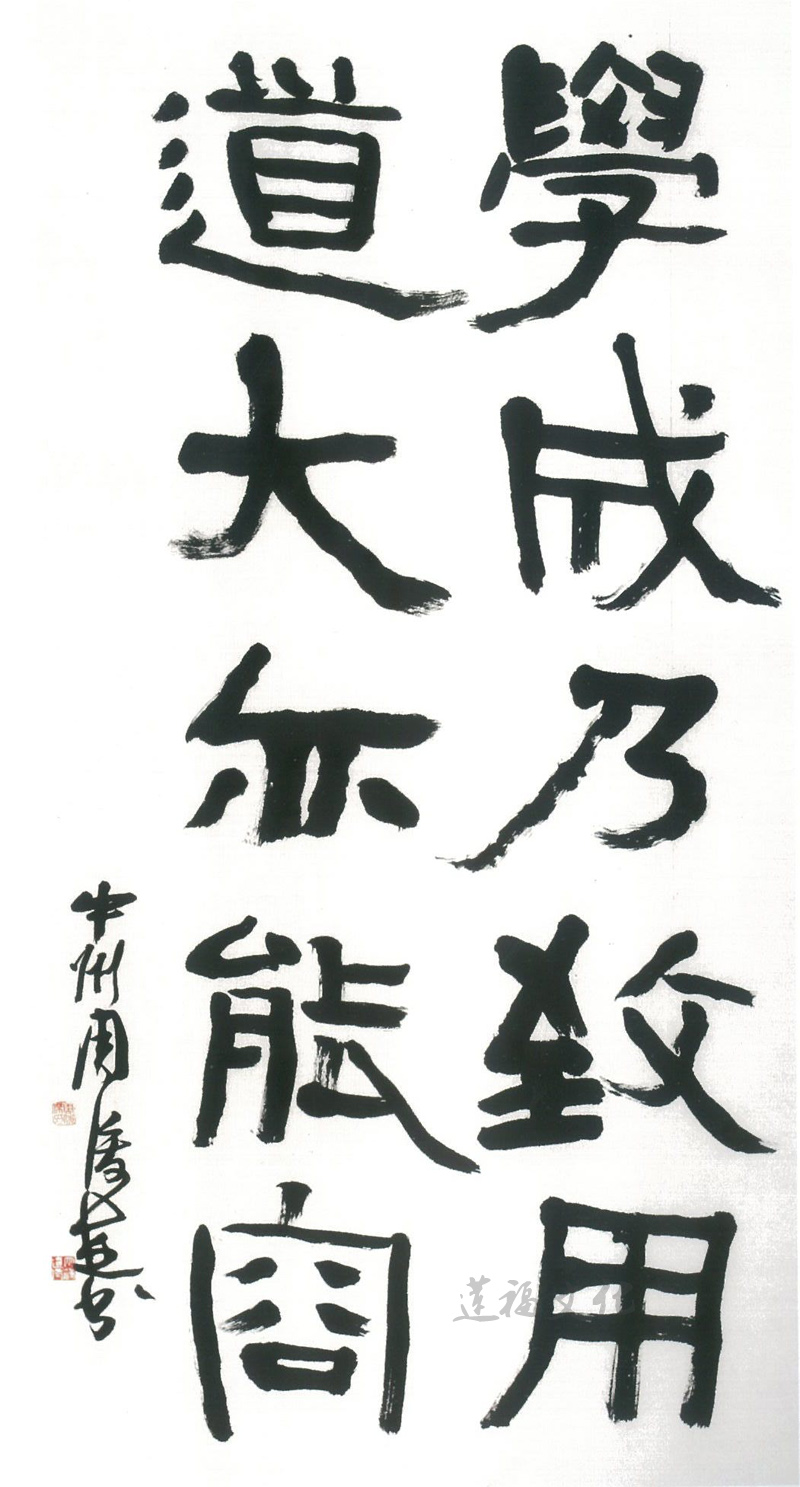 學成乃致用
道大亦能容
中州周俊杰书
莲福文化